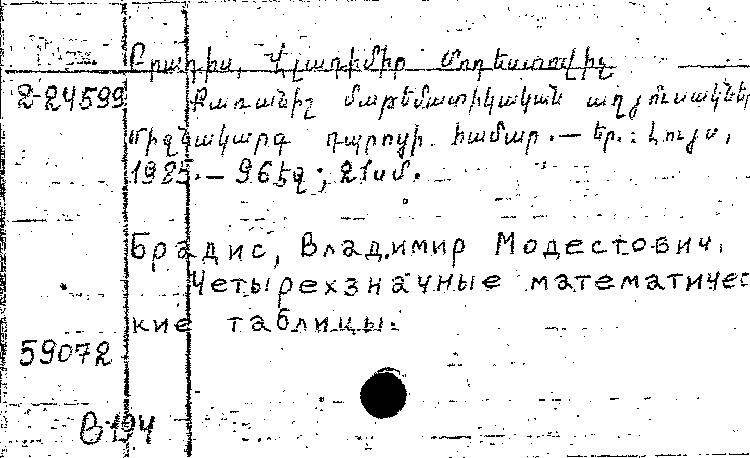 Բրադիս, Վլադիմիր Մոդեստովիչ
2-24599 Քառանիշ մաթեմատիկական աղյուսակներ
Միջնակարգ դպրոցի համար.— Եր.: Լույս,
1985.— 96 էջ; 21սմ.
Брадис, Владимир Модестович.
Четырехзначные математичес
кие таблицы.
59072
В 194